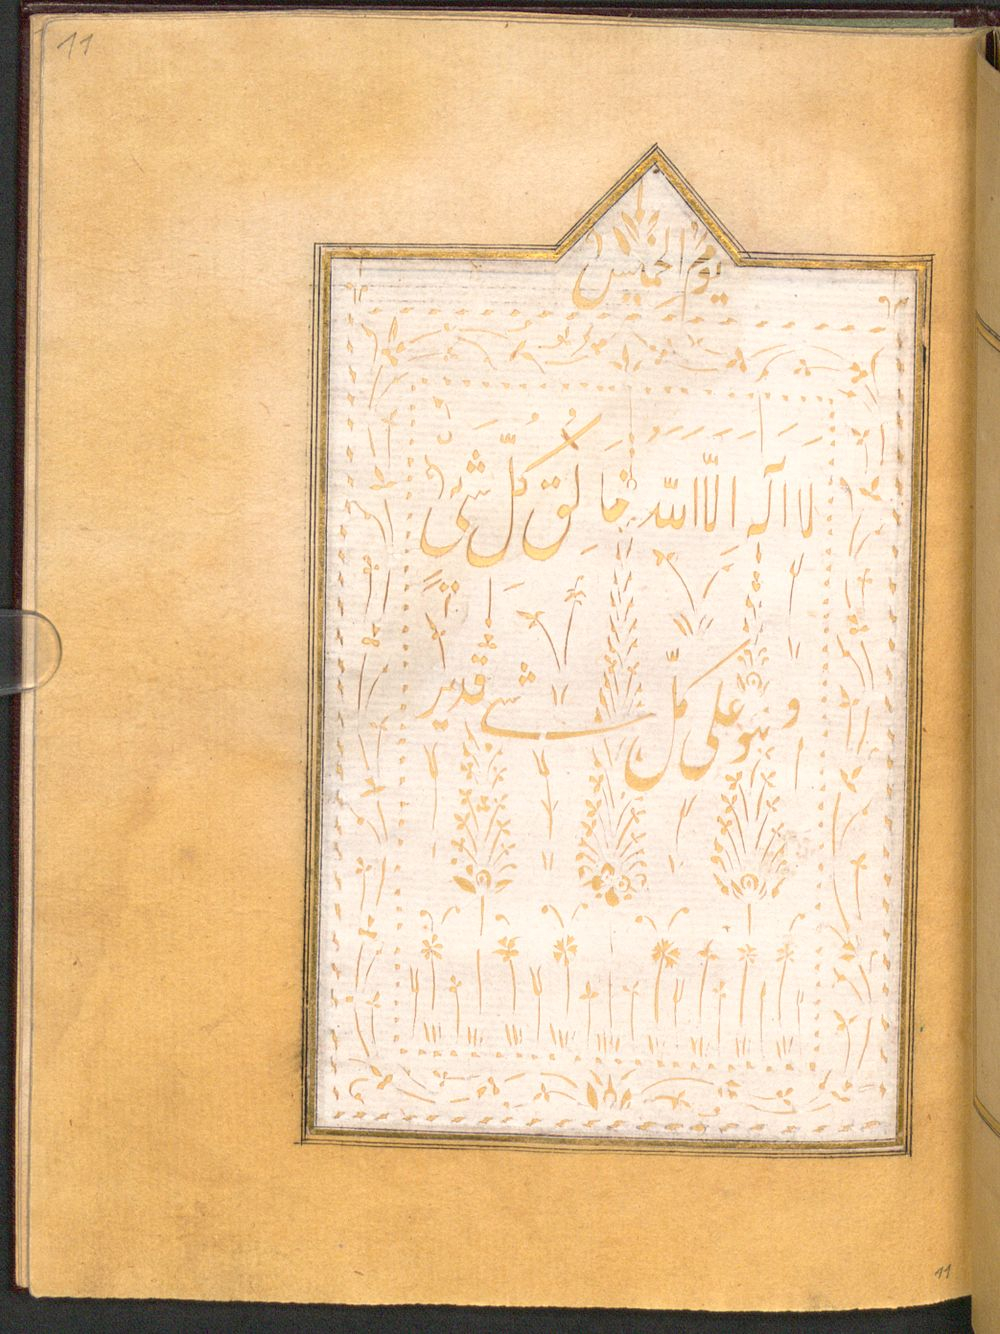 11
يوم الخميس
لا اله الا الله خالق كل شئ
وهو على كل شئ قدير
11